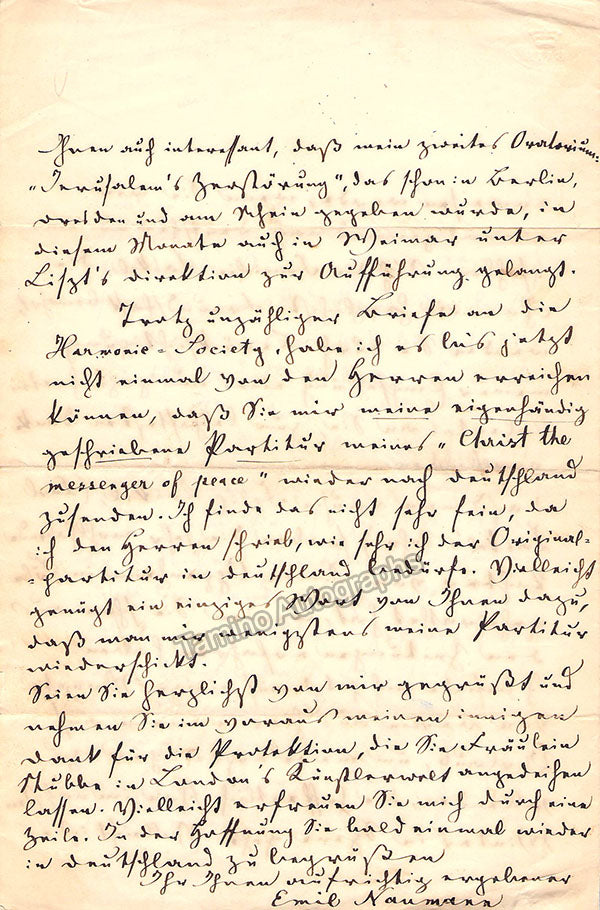 Ihnen auch interessant, daß mein zweites Oratorium:
„Jerusalem's Zerstörung", das schon in Berlin,
Dresden und am Rhein gegeben wurde, in
diesem Monate auch in Weimar unter
Liszt's Direktion zur Aufführung gelangt.
Trotz unzähliger Briefe an die
Harmonic=Society, habe ich es bis jetzt
nicht einmal von den Herren erreichen
können, daß Sie mir meine eigenhändig
geschriebene Partitur meines „Christ the
messenger of peace" wieder nach Deutschland
zusenden. Ich finde das nicht sehr fein, da
ich den Herren schrieb, wie sehr ich der Original=
=partitur in Deutschland bedürfe. Vielleicht
genügt ein einziges Wort von Ihnen dazu,
daß man mir wenigstens meine Partitur
wiederschickt.
Seien Sie herzlichst von mir gegrüßt und
nehmen Sie im voraus meinen innigen
Dank für die Protektion, die Sie Fräulein
Stubbe in London's Künstlerwelt angedeihen
lassen. Vielleicht erfreuen Sie mich durch eine
Zeile. In der Hoffnung Sie bald einmal wieder
in Deutschland zu begrüßen
Ihr Ihnen aufrichtig ergebener
Emil Naumann
Tamino Autographs